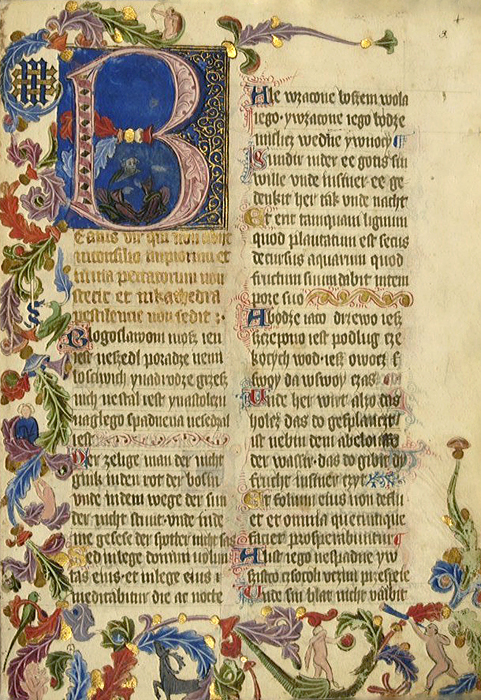 B
Eatus vir qui non abijt
in consilio impiorum et
in uia peccatorum non
stetit et in kathedra
pestilencie non sedit :
Blogoslawoni mosz ien
iest neszedl poradze nemi
losciwich ynadrodze grzesz
nich nestal iest ynastolcu
naglego spadnena nesedzal
iest
Der zelige man der nicht
gink in den rot der bosin
vnde in dem wege der sun
der nicht stunt vnde in de
me gesese der spotter nicht sas
Sed in lege domini uolun
tas eius et in lege eius
meditabitur die ac nocte
Ale wzacone bosem wola
iego y wzacone iego bodze
mislicz wednie y w nocy
Sundir in der ee gotis sin
wille vnde in siner ee ge
denkit her tak vnde nacht
Et erit tamquam lignum
quod plantatum est secus
decursus aquarum quod
fructum suum dabit in tem
pore suo
A bodze iaco drzewo iesz
szczepono iest podlug cze
kocych wod iesz owocz
swoy da w swoy czas
Unde her wirt alzo das
holcz das do gesplanczt
ist nebin dem abeloufte
der wassir das do gibit dy
fruchte in siner czyt
Et folium eius non deflu
et et omnia quecumque
faciet prosperabuntur
A list iego nespadne y w
szistko czsokoli vczini przespeie
Unde sin blat nicht valbit